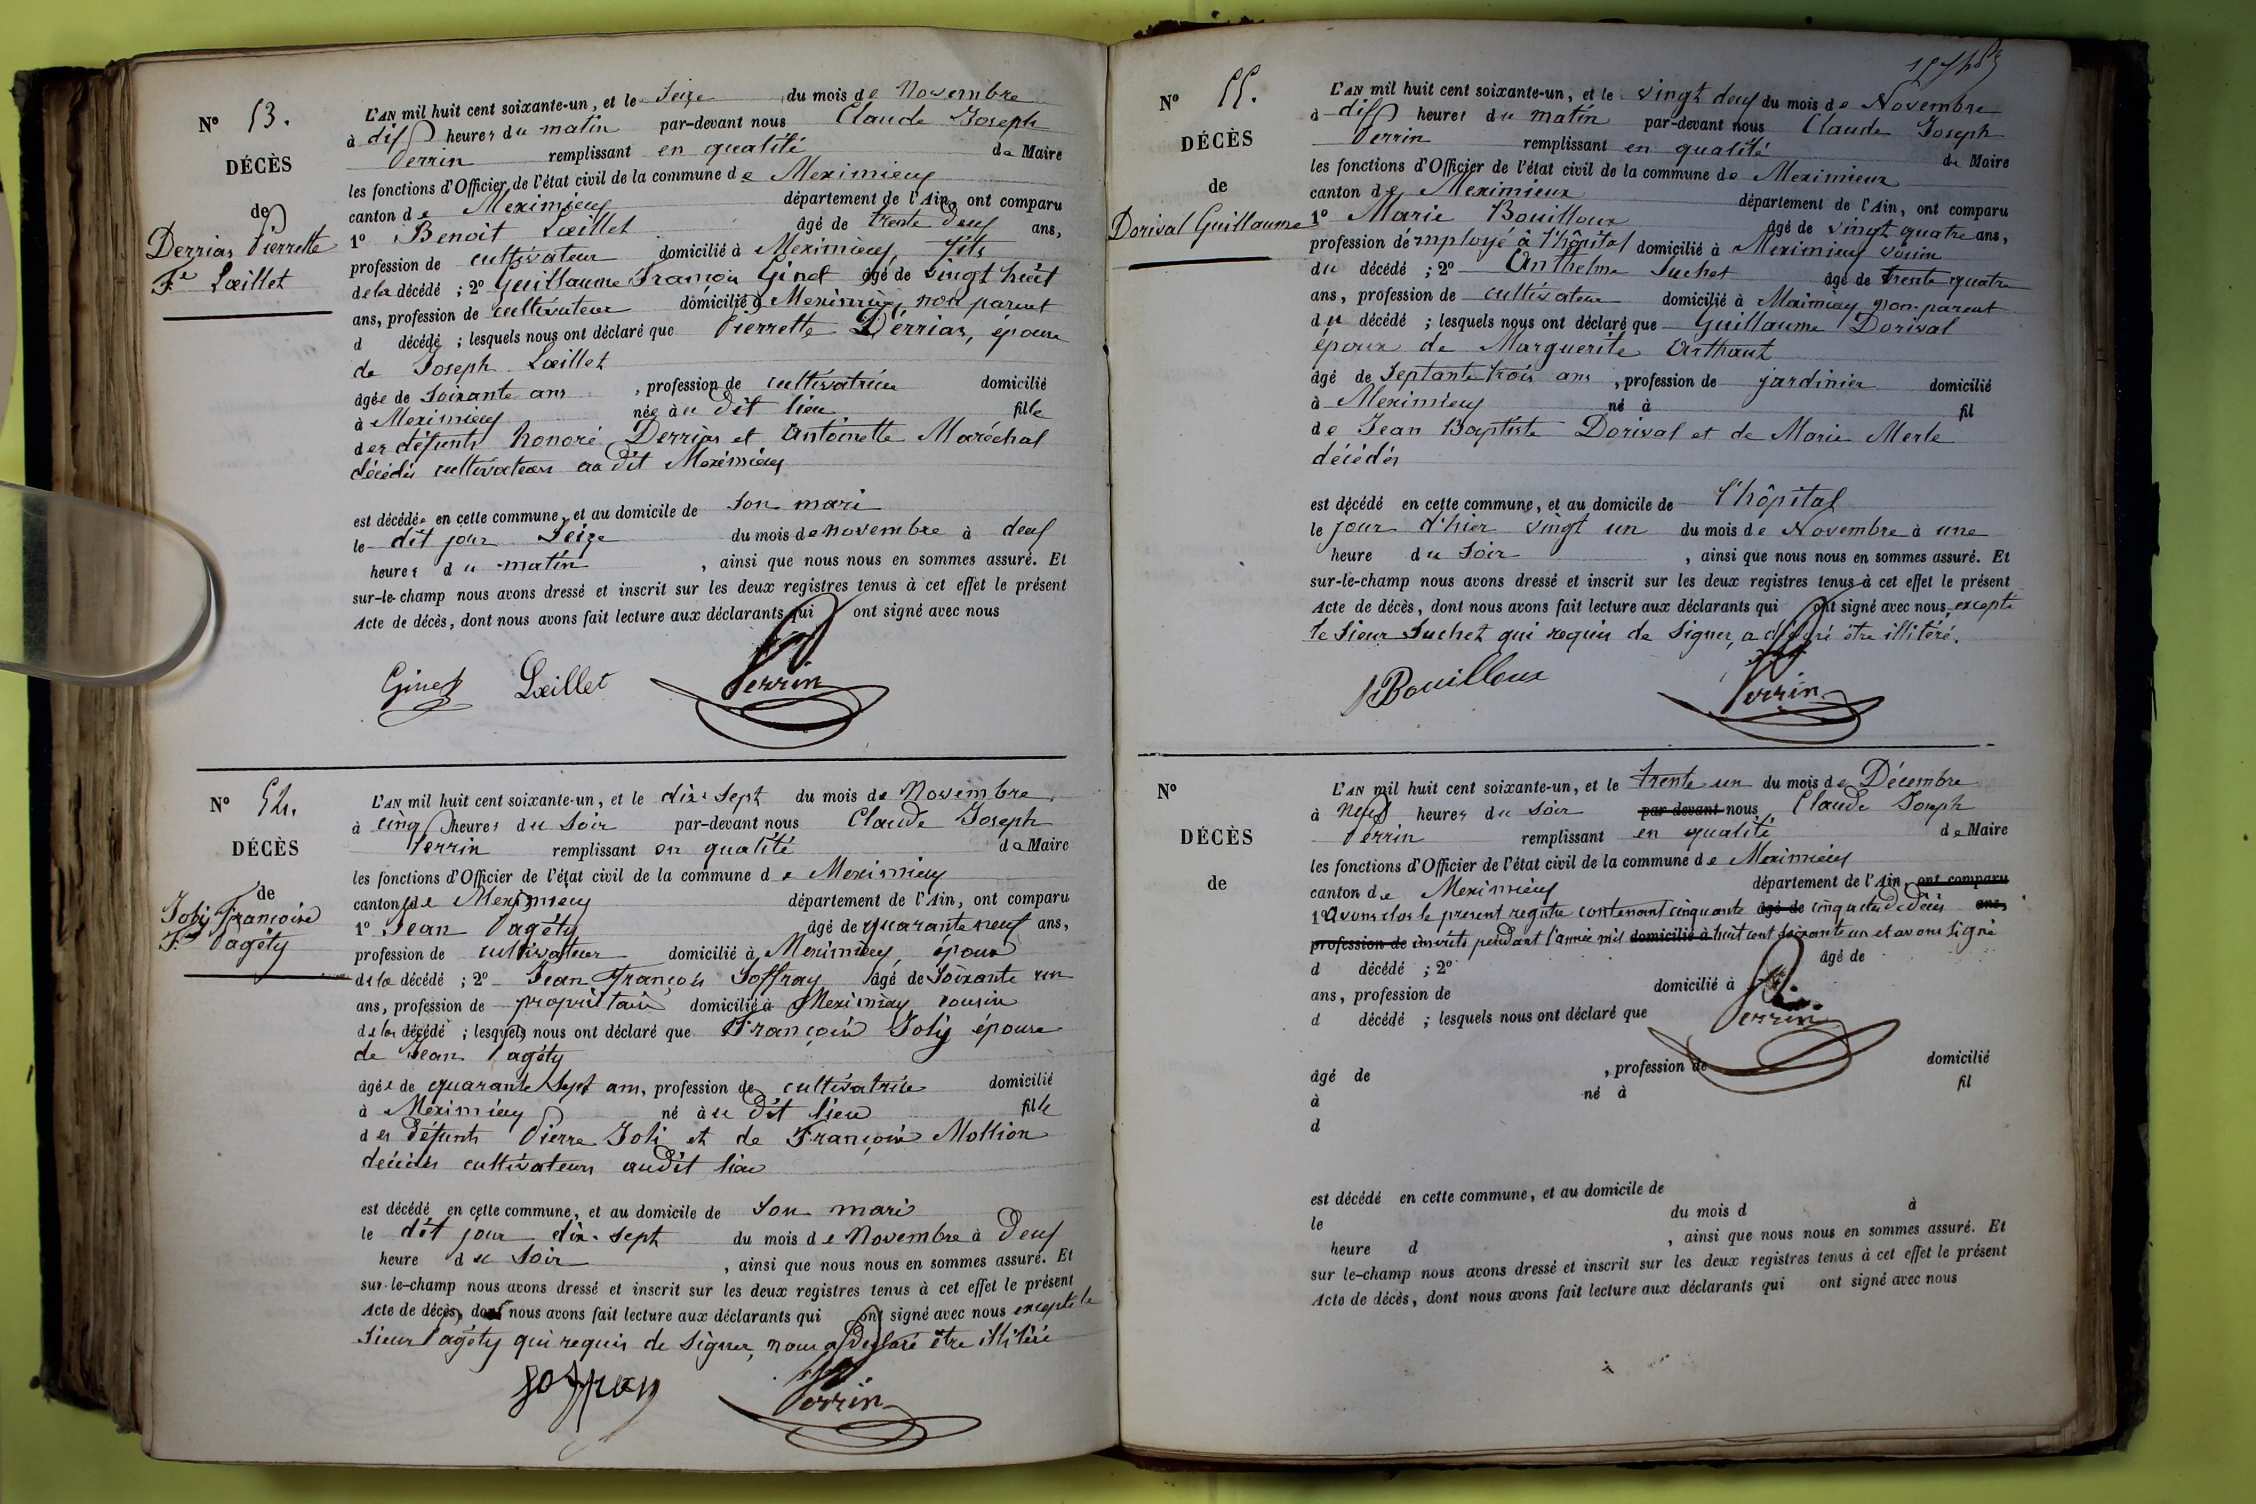 N° 53.
DÉCÈS
de
Derrias Pierrette
Fe Lœillet
L'AN mil huit cent soixante-un, et le Seize du mois de Novembre
à dix heures du matin par-devant nous Claude Joseph
Perrin remplissant en qualité de Maire
les fonctions d'Officier de l'état civil de la commune de Meximieux
canton de Meximieux département de l'Ain, ont comparu
1° Benoit Lœillet âgé de trente deux ans,
profession de cultivateur domicilié à Meximieux, fils
de la décédé ; 2° Guillaume François Ginet âgé de vingt huit
ans, profession de cultivateur domicilié à Meximieux, non parent
d décédé ; lesquels nous ont déclaré que Pierrette Derrias, épouse
de Joseph Lœillet
âgée de soixante ans , profession de cultivatrice domicilié
à Meximieux née au dit lieu fille
des défunts honoré Derrias et Antoinette Maréchal
décédés cultivateurs au dit Meximieux
est décédée en cette commune, et au domicile de son mari
le dit jour Seize du mois de novembre à deux
heures du matin , ainsi que nous nous en sommes assuré. Et
sur-le-champ nous avons dressé et inscrit sur les deux registres tenus à cet effet le présent
Acte de décès, dont nous avons fait lecture aux déclarants qui ont signé avec nous
Ginet Lœillet Perrin
N° 54.
DÉCÈS
de
Joly Françoise
Fe Pagéty
L'AN mil huit cent soixante-un, et le dix-sept du mois de Novembre
à cinq heures du soir par-devant nous Claude Joseph
Perrin remplissant en qualité de Maire
les fonctions d'Officier de l'état civil de la commune de Meximieux
canton de Meximieux département de l'Ain, ont comparu
1° Jean Pagéty âgé de quarante neuf ans,
profession de cultivateur domicilié à Meximieux, époux
de la décédé ; 2° Jean François Joffray âgé de soixante un
ans, profession de propriétaire domicilié à Meximieux cousin
de la décédé ; lesquels nous ont déclaré que Françoise Joly épouse
de Jean Pagéty
âgée de quarante sept ans, profession de cultivatrice domicilié
à Meximieux né au dit lieu fille
des défunts Pierre Joli et de Françoise Mollion
décédés cultivateurs audit lieu
est décédé en cette commune, et au domicile de son mari
le dit jour dix-sept du mois de Novembre à deux
heure du soir , ainsi que nous nous en sommes assuré. Et
sur-le-champ nous avons dressé et inscrit sur les deux registres tenus à cet effet le présent
Acte de décès, dont nous avons fait lecture aux déclarants qui ont signé avec nous excepté le
Sieur Pagéty qui requis de signer, nous a déclaré être illitéré
Joffray Perrin
N° 55.
DÉCÈS
de
Dorival Guillaume
L'AN mil huit cent soixante-un, et le vingt deux du mois de Novembre
à dix heures du matin par-devant nous Claude Joseph
Perrin remplissant en qualité de Maire
les fonctions d'Officier de l'état civil de la commune de Meximieux
canton de Meximieux département de l'Ain, ont comparu
1° Marie Bouilloux âgé de vingt quatre ans,
profession d'employé à l'hôpital domicilié à Meximieux voisin
du décédé ; 2° Anthelme Suchet âgé de trente quatre
ans, profession de cultivateur domicilié à Meximieux non-parent
du décédé ; lesquels nous ont déclaré que Guillaume Dorival
époux de Marguerite Arthaut
âgé de septante trois ans , profession de jardinier domicilié
à Meximieux né à fil
de Jean Baptiste Dorival et de Marie Merle
décédés
est décédé en cette commune, et au domicile de l'hôpital
le jour d'hier vingt un du mois de Novembre à une
heure du soir , ainsi que nous nous en sommes assuré. Et
sur-le-champ nous avons dressé et inscrit sur les deux registres tenus à cet effet le présent
Acte de décès, dont nous avons fait lecture aux déclarants qui ont signé avec nous, excepté
le Sieur Suchet qui requis de signer, a déclaré être illitéré.
Bouilloux Perrin
N°
DÉCÈS
de
L'AN mil huit cent soixante-un, et le trente un du mois de Décembre
à neuf heures du soir par devant nous, Claude Joseph
Perrin remplissant en qualité de Maire
les fonctions d'Officier de l'état civil de la commune de Meximieux
canton de Meximieux département de l'Ain, ont comparu
1° Avons clos le present registre contenant cinquante âgé de cinq actes de décès ans,
profession de inscrits pendant l'année mil domicilié à huit cent soixante un et avons signé
d décédé ; 2° âgé de
ans, profession de domicilié à
d décédé ; lesquels nous ont déclaré que Perrin
âgé de , profession de domicilié
à né à fil
d
est décédé en cette commune, et au domicile de
le du mois d à
heure d , ainsi que nous nous en sommes assuré. Et
sur le-champ nous avons dressé et inscrit sur les deux registres tenus à cet effet le présent
Acte de décès, dont nous avons fait lecture aux déclarants qui ont signé avec nous